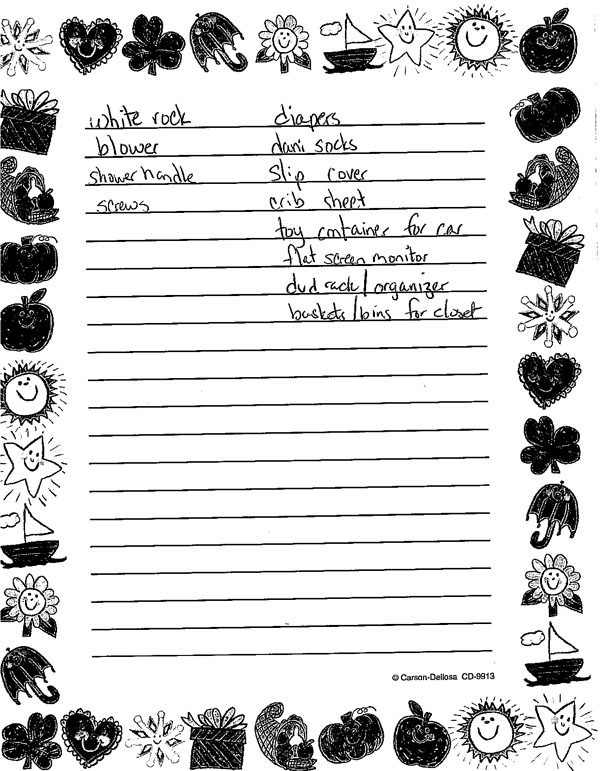 white rock diapers
blower dani socks
shower handle slip cover
screws crib sheet
toy container for car
flat screen monitor
dvd rack/organizer
baskets/bins for closet
© Carson-Dellosa CD-9913